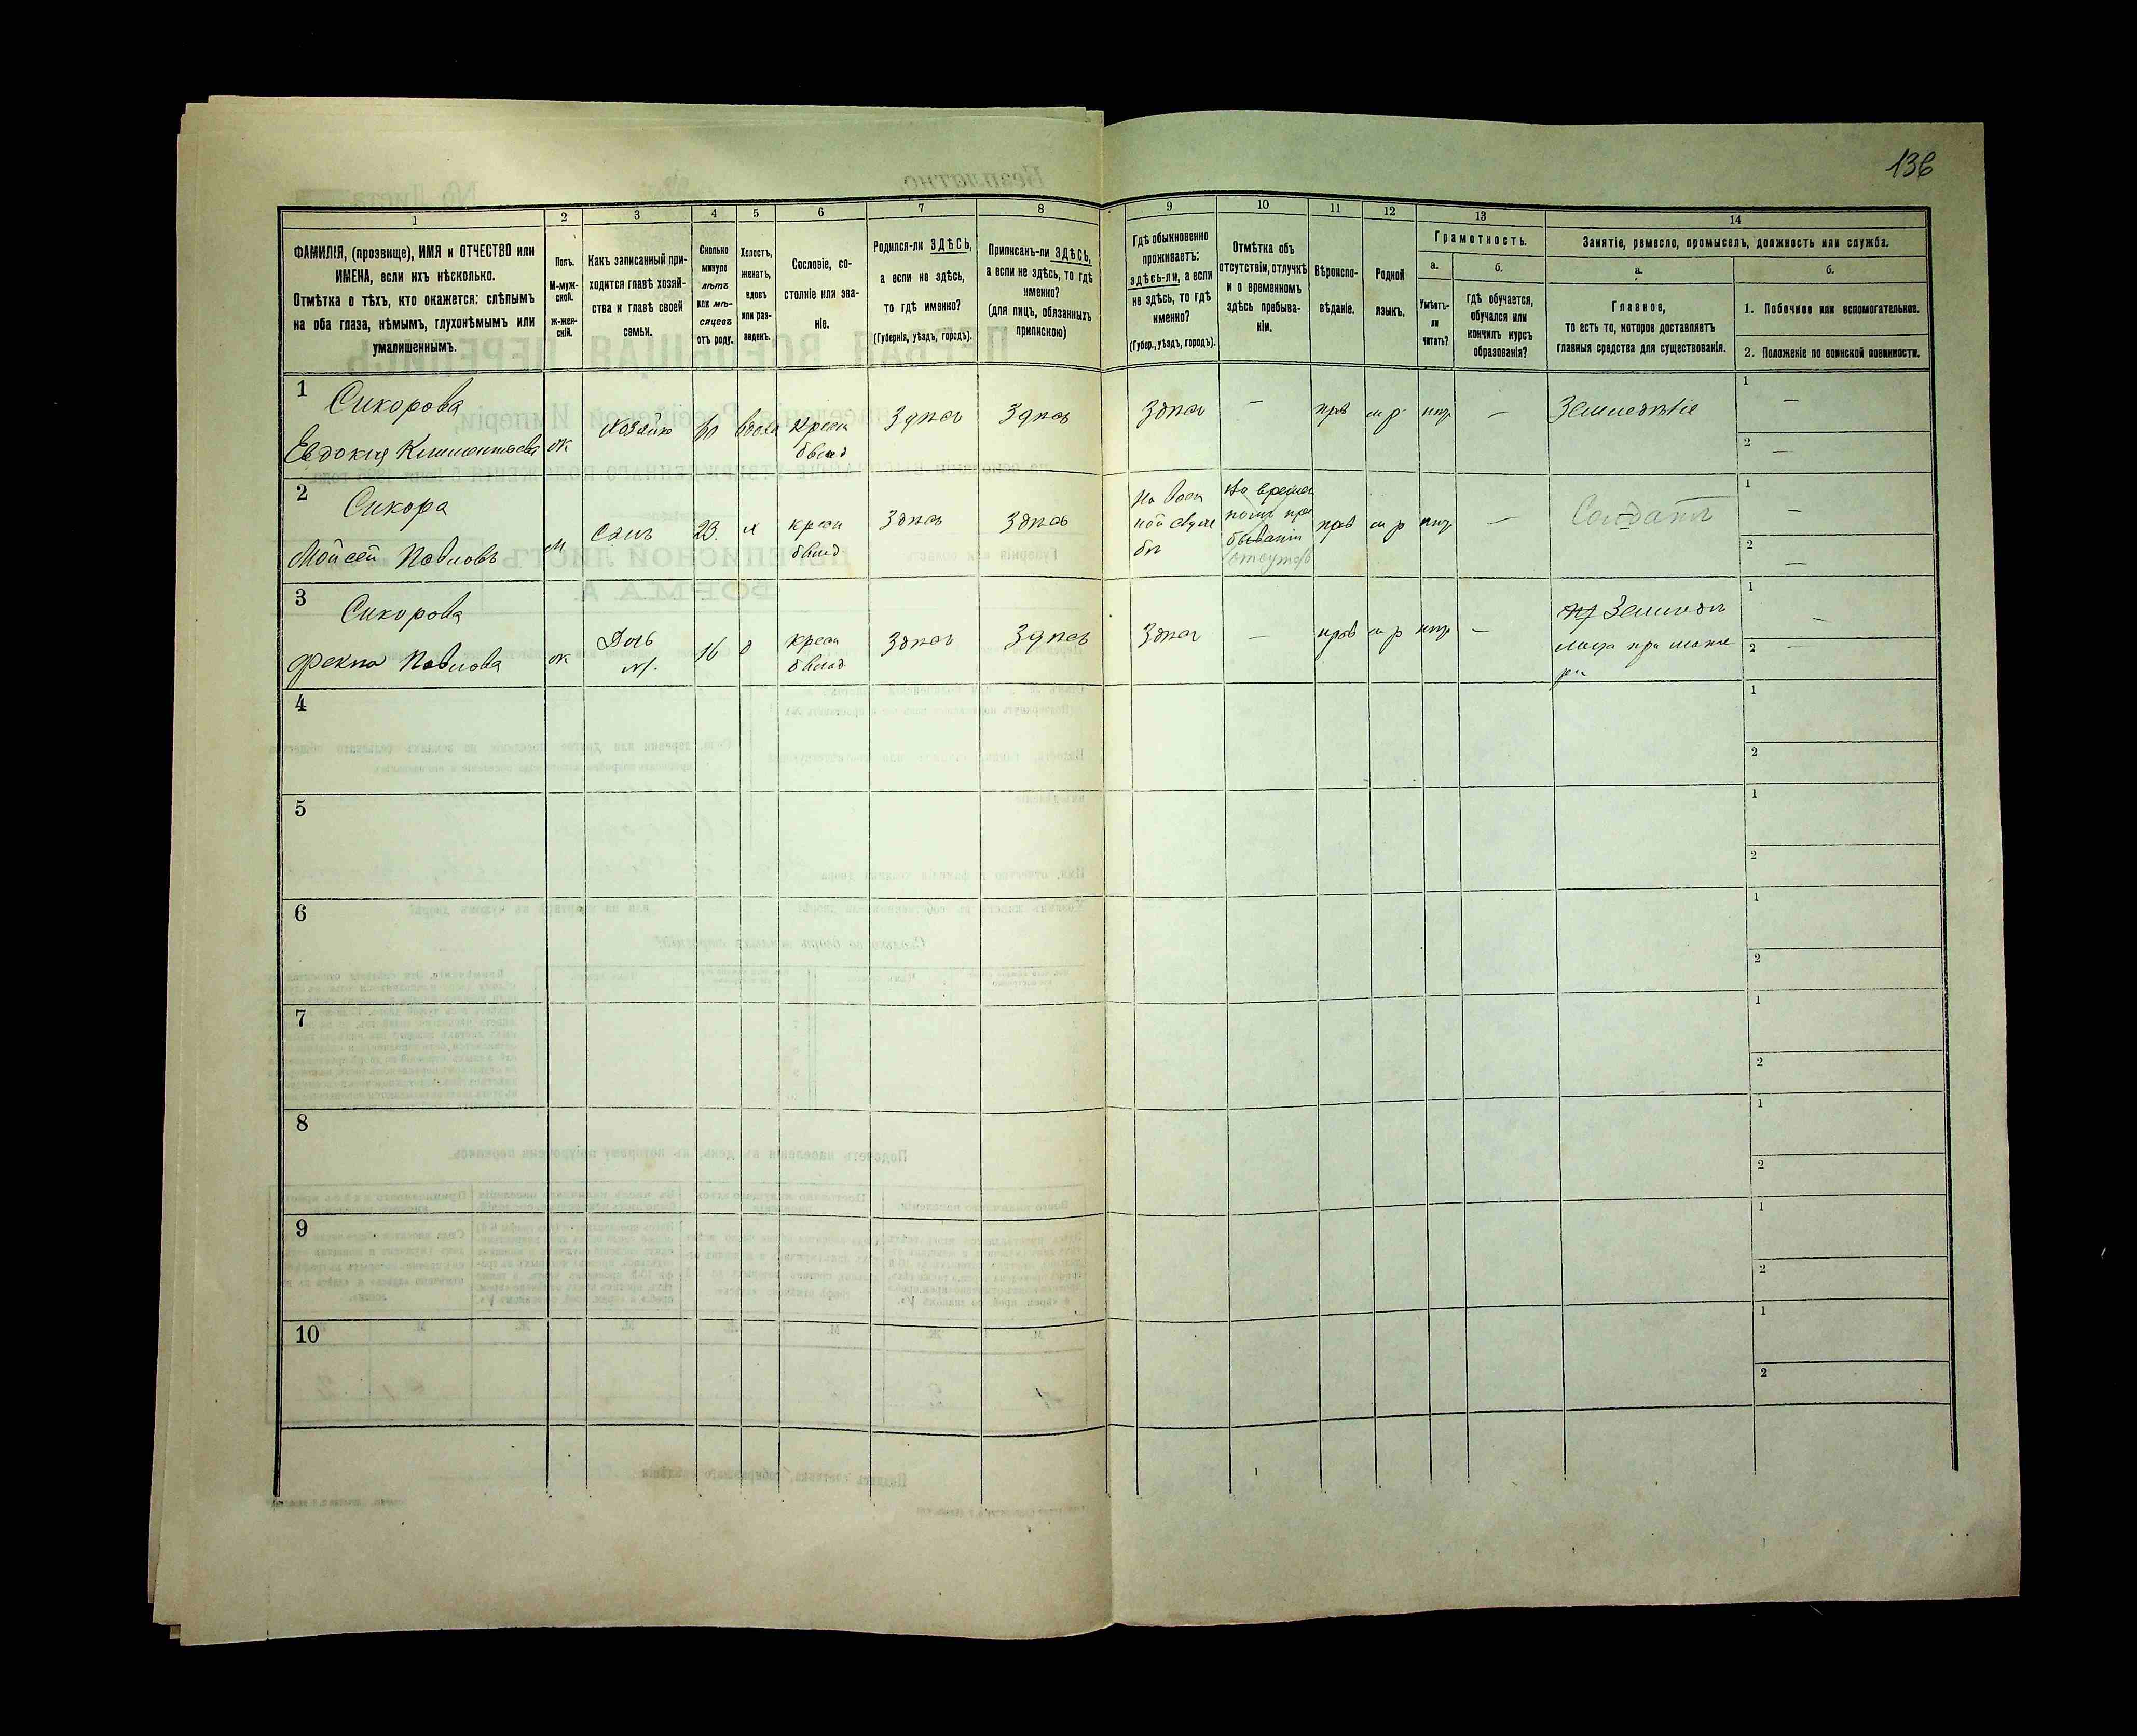 136
1
ФАМИЛІЯ, (прозвище), ИМЯ и ОТЧЕСТВО или
ИМЕНА, если ихъ нѣсколько.
Отмѣтка о тѣхъ, кто окажется: слѣпымъ
на оба глаза, нѣмымъ, глухонѣмымъ или
умалишеннымъ.
2
Полъ.
М-муж-
ской.
ж-жен-
скій.
3
Какъ записанный при-
ходится главѣ хозяй-
ства и главѣ своей
семьи.
4
Сколько
минуло
лѣтъ
или мѣ-
сяцевъ
отъ роду.
5
Холостъ,
женатъ,
вдовъ
или раз-
веденъ.
6
Сословіе, со-
стояніе или зва-
ніе.
7
Родился-ли ЗДѢСЬ,
а если не здѣсь,
то гдѣ именно?
(Губернія, уѣздъ, городъ).
8
Приписанъ-ли ЗДѢСЬ,
а если не здѣсь, то гдѣ
именно?
(для лицъ, обязанныхъ
припискою)
9
Гдѣ обыкновенно
проживаетъ:
здѣсь-ли, а если
не здѣсь, то гдѣ
именно?
(Губер., уѣздъ, городъ).
10
Отмѣтка объ
отсутствіи, отлучкѣ
и о временномъ
здѣсь пребыва-
ніи.
11
Вѣроиспо-
вѣданіе.
12
Родной
языкъ.
13
Грамотность.
а.
Умѣетъ-
ли
читать?
б.
Гдѣ обучается,
обучался или
кончилъ курсъ
образованія?
14
Занятіе, ремесло, промыселъ, должность или служба.
а.
Главное,
то есть то, которое доставляетъ
главныя средства для существованія.
б.
1. Побочное или вспомогательное.
2. Положеніе по воинской повинности.
1
Сикорова
Евдокія Климентьева
ж
Хозяйка
60
вдова
крест
б влад
Здѣсь
Здѣсь
Здѣсь
—
прв
м р
нтъ
—
Земледѣліе
1
—
2
—
2
Сикора
Мойсей Павловъ
м
Сынъ
23
х
крест
б влад
Здѣсь
Здѣсь
На воен
ной служ
бѣ
прав
м р
—
Солдатъ
1
—
2
—
3
Сикорова
Фекла Павлова
ж
Дочь
16
д
крест
б влад
Здѣсь
Здѣсь
Здѣсь
—
прав
м р
—
1
—
2
—
4
1
2
5
1
2
6
1
2
7
1
2
8
1
2
9
1
2
10
1
2